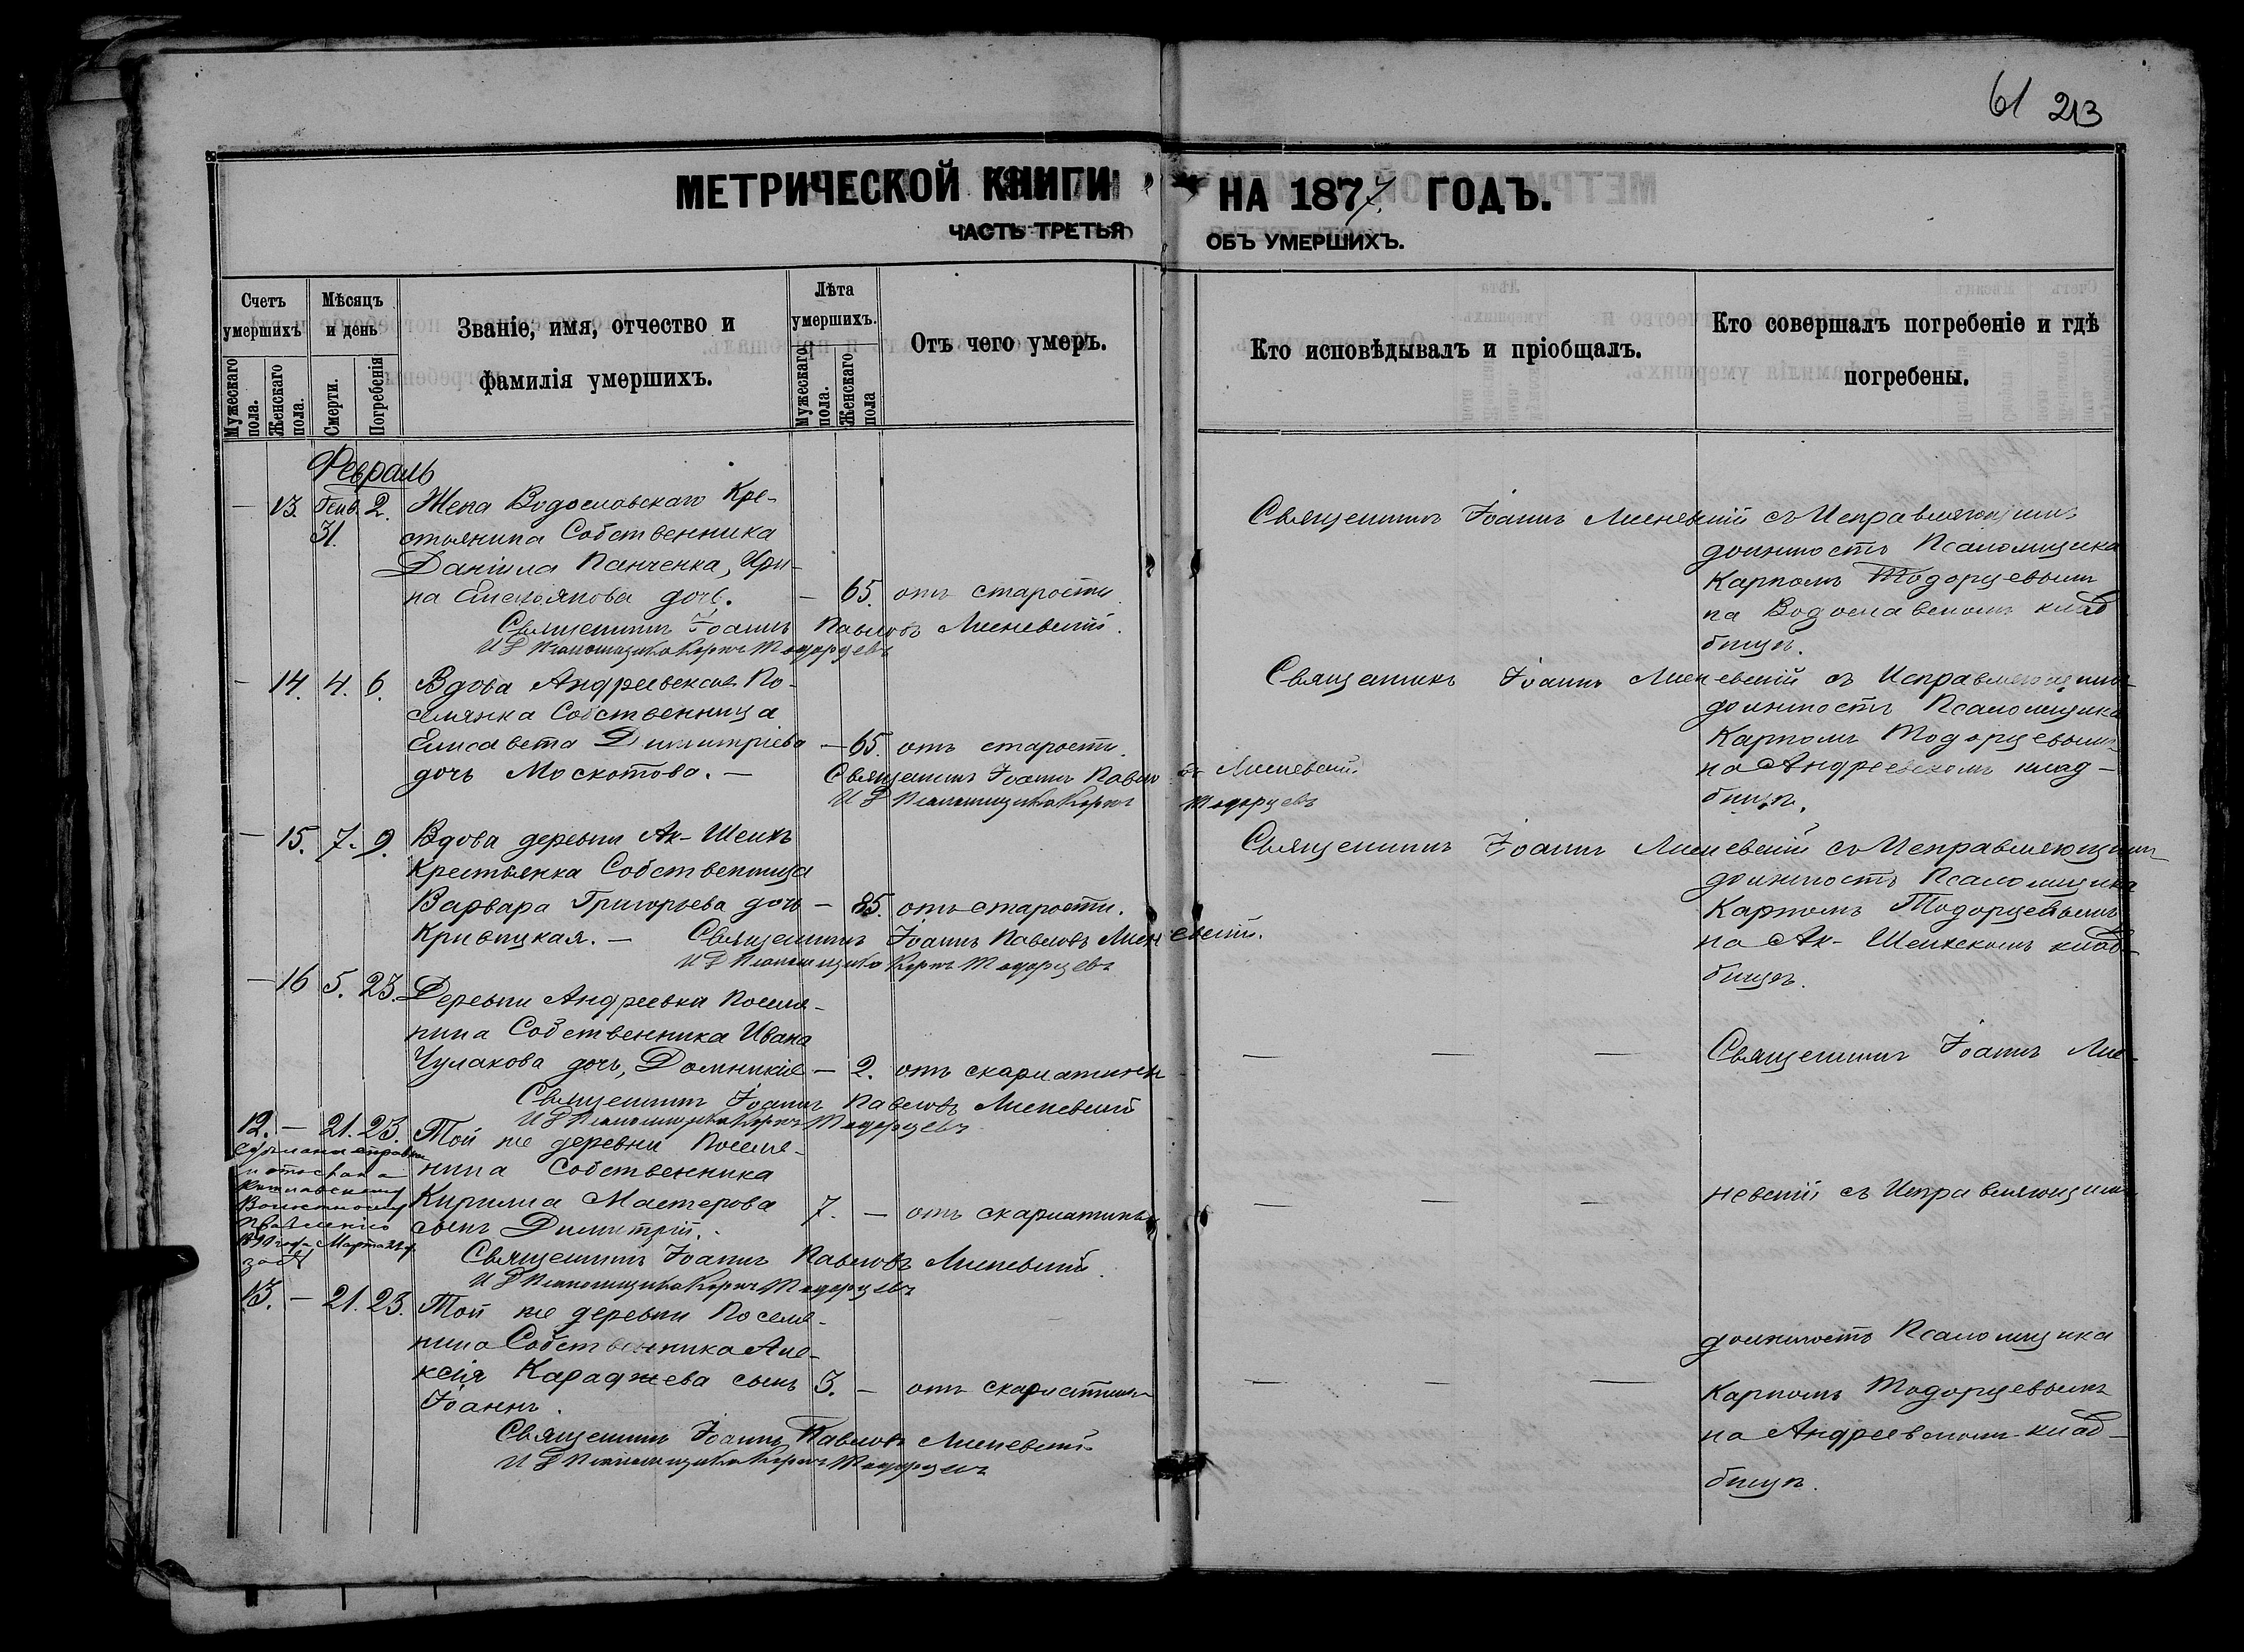 61 213
МЕТРИЧЕСКОЙ КНИГИ НА 1877 ГОДЪ.
ЧАСТЬ ТРЕТЬЯ ОБЪ УМЕРШИХЪ.
Счетъ умершихъ
Мужескаго пола.
Женскаго пола.
Мѣсяцъ и день
Смерти.
Погребенія
Званіе, имя, отчество и
фамилія умершихъ.
Лѣта умершихъ.
Мужескаго пола.
Женскаго пола
Отъ чего умеръ.
Кто исповѣдывалъ и пріобщалъ.
Кто совершалъ погребеніе и гдѣ
погребены.
Февраль
— 13. Генв. 2. Жена Водославскаго Кре-
31. стьянина Собственника
Даніила Панченка, Ири-
на дочь. — 65. отъ старости
Священникъ Іоаннъ Павловъ Лисневскій.
И Д Псаломщика Карпъ Тодорцевъ
Священникъ Іоаннъ Лисневскій съ Исправляющимъ
должность Псаломщика
Карпомъ Тодорцевымъ
на Водославскомъ клад
бищѣ.
— 14. 4. 6. Вдова Андреевская По-
селянка Собственница
Елисавета Димитріева — 65. отъ старости.
дочь Москотова. —
Священникъ Іоаннъ Павловъ Лисневскій.
И Д Псаломщика Карпъ Тодорцевъ
Священникъ Іоаннъ Лисневскій съ Исправляющимъ
должность Псаломщика
Карпомъ Тодорцевымъ
на Андреевскомъ клад-
бищѣ.
— 15. 7. 9. Вдова деревни Ак-Шеихъ
Крестьянка Собственница
Варвара Григорьева дочь — 85. отъ старости.
Кривицкая. — Священникъ Іоаннъ Павловъ Лисневскій.
И Д Псаломщика Карпъ Тодорцевъ
Священникъ Іоаннъ Лисневскій съ Исправляющимъ
должность Псаломщика
Карпомъ Тодорцевымъ
на Ак-Шеихскомъ клад-
бищѣ.
— 16 5. 23. Деревни Андреевки Поселя-
нина Собственника Ивана
Чулакова дочь, Домникія — 2. отъ скарлатины
Священникъ Іоаннъ Павловъ Лисневскій
И Д Псаломщика Карпъ Тодорцевъ
— — — Священникъ Іоаннъ Лис-
12. — 21. 23. Той же деревни Поселя-
нина Собственника
Кирилла Мастерова 7. — отъ скарлатины
сынъ Димитрій.
Священникъ Іоаннъ Павловъ Лисневскій.
И Д Псаломщика Карпъ Тодорцевъ
Волостному
Правленію
— — — невскій съ Исправляющимъ
13. — 21. 23. Той же деревни Поселя-
нина Собственника Але-
ксія Караджева сынъ 3. — отъ скарлатины
Іоаннъ.
Священникъ Іоаннъ Павловъ Лисневскій
И Д Псаломщика Карпъ Тодорцевъ
должность Псаломщика
— — — Карпомъ Тодорцевымъ
на Андреевскомъ клад-
бищѣ.